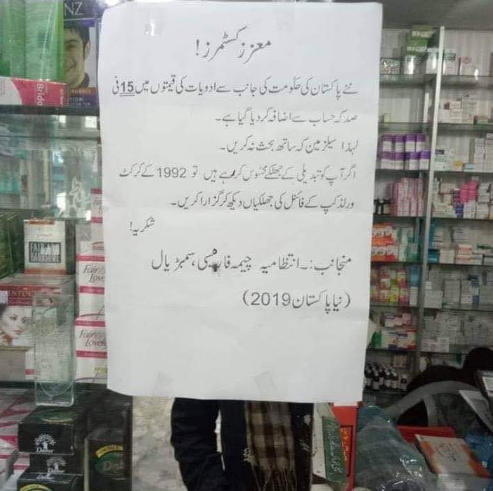 معزز کسٹمرز!
نئے پاکستان کی حکومت کی جانب سے ادویات کی قیمتوں میں 15 فی
صد کہ حساب سے اضافہ کر دیا گیا ہے۔
لہذا سیلز مین کہ ساتھ بحث نہ کریں۔
اگر آپ کو تبدیلی کے جھٹکے محسوس کر رہے ہیں تو 1992 کے کرکٹ
ورلڈ کپ کے فائنل کی جھلکیاں دیکھ کر گزارا کریں۔
شکریہ!
منجانب:۔ انتظامیہ چیمہ فارمیسی، سمبڑیال
(نیا پاکستان 2019)
NZ
Fair
Lovely